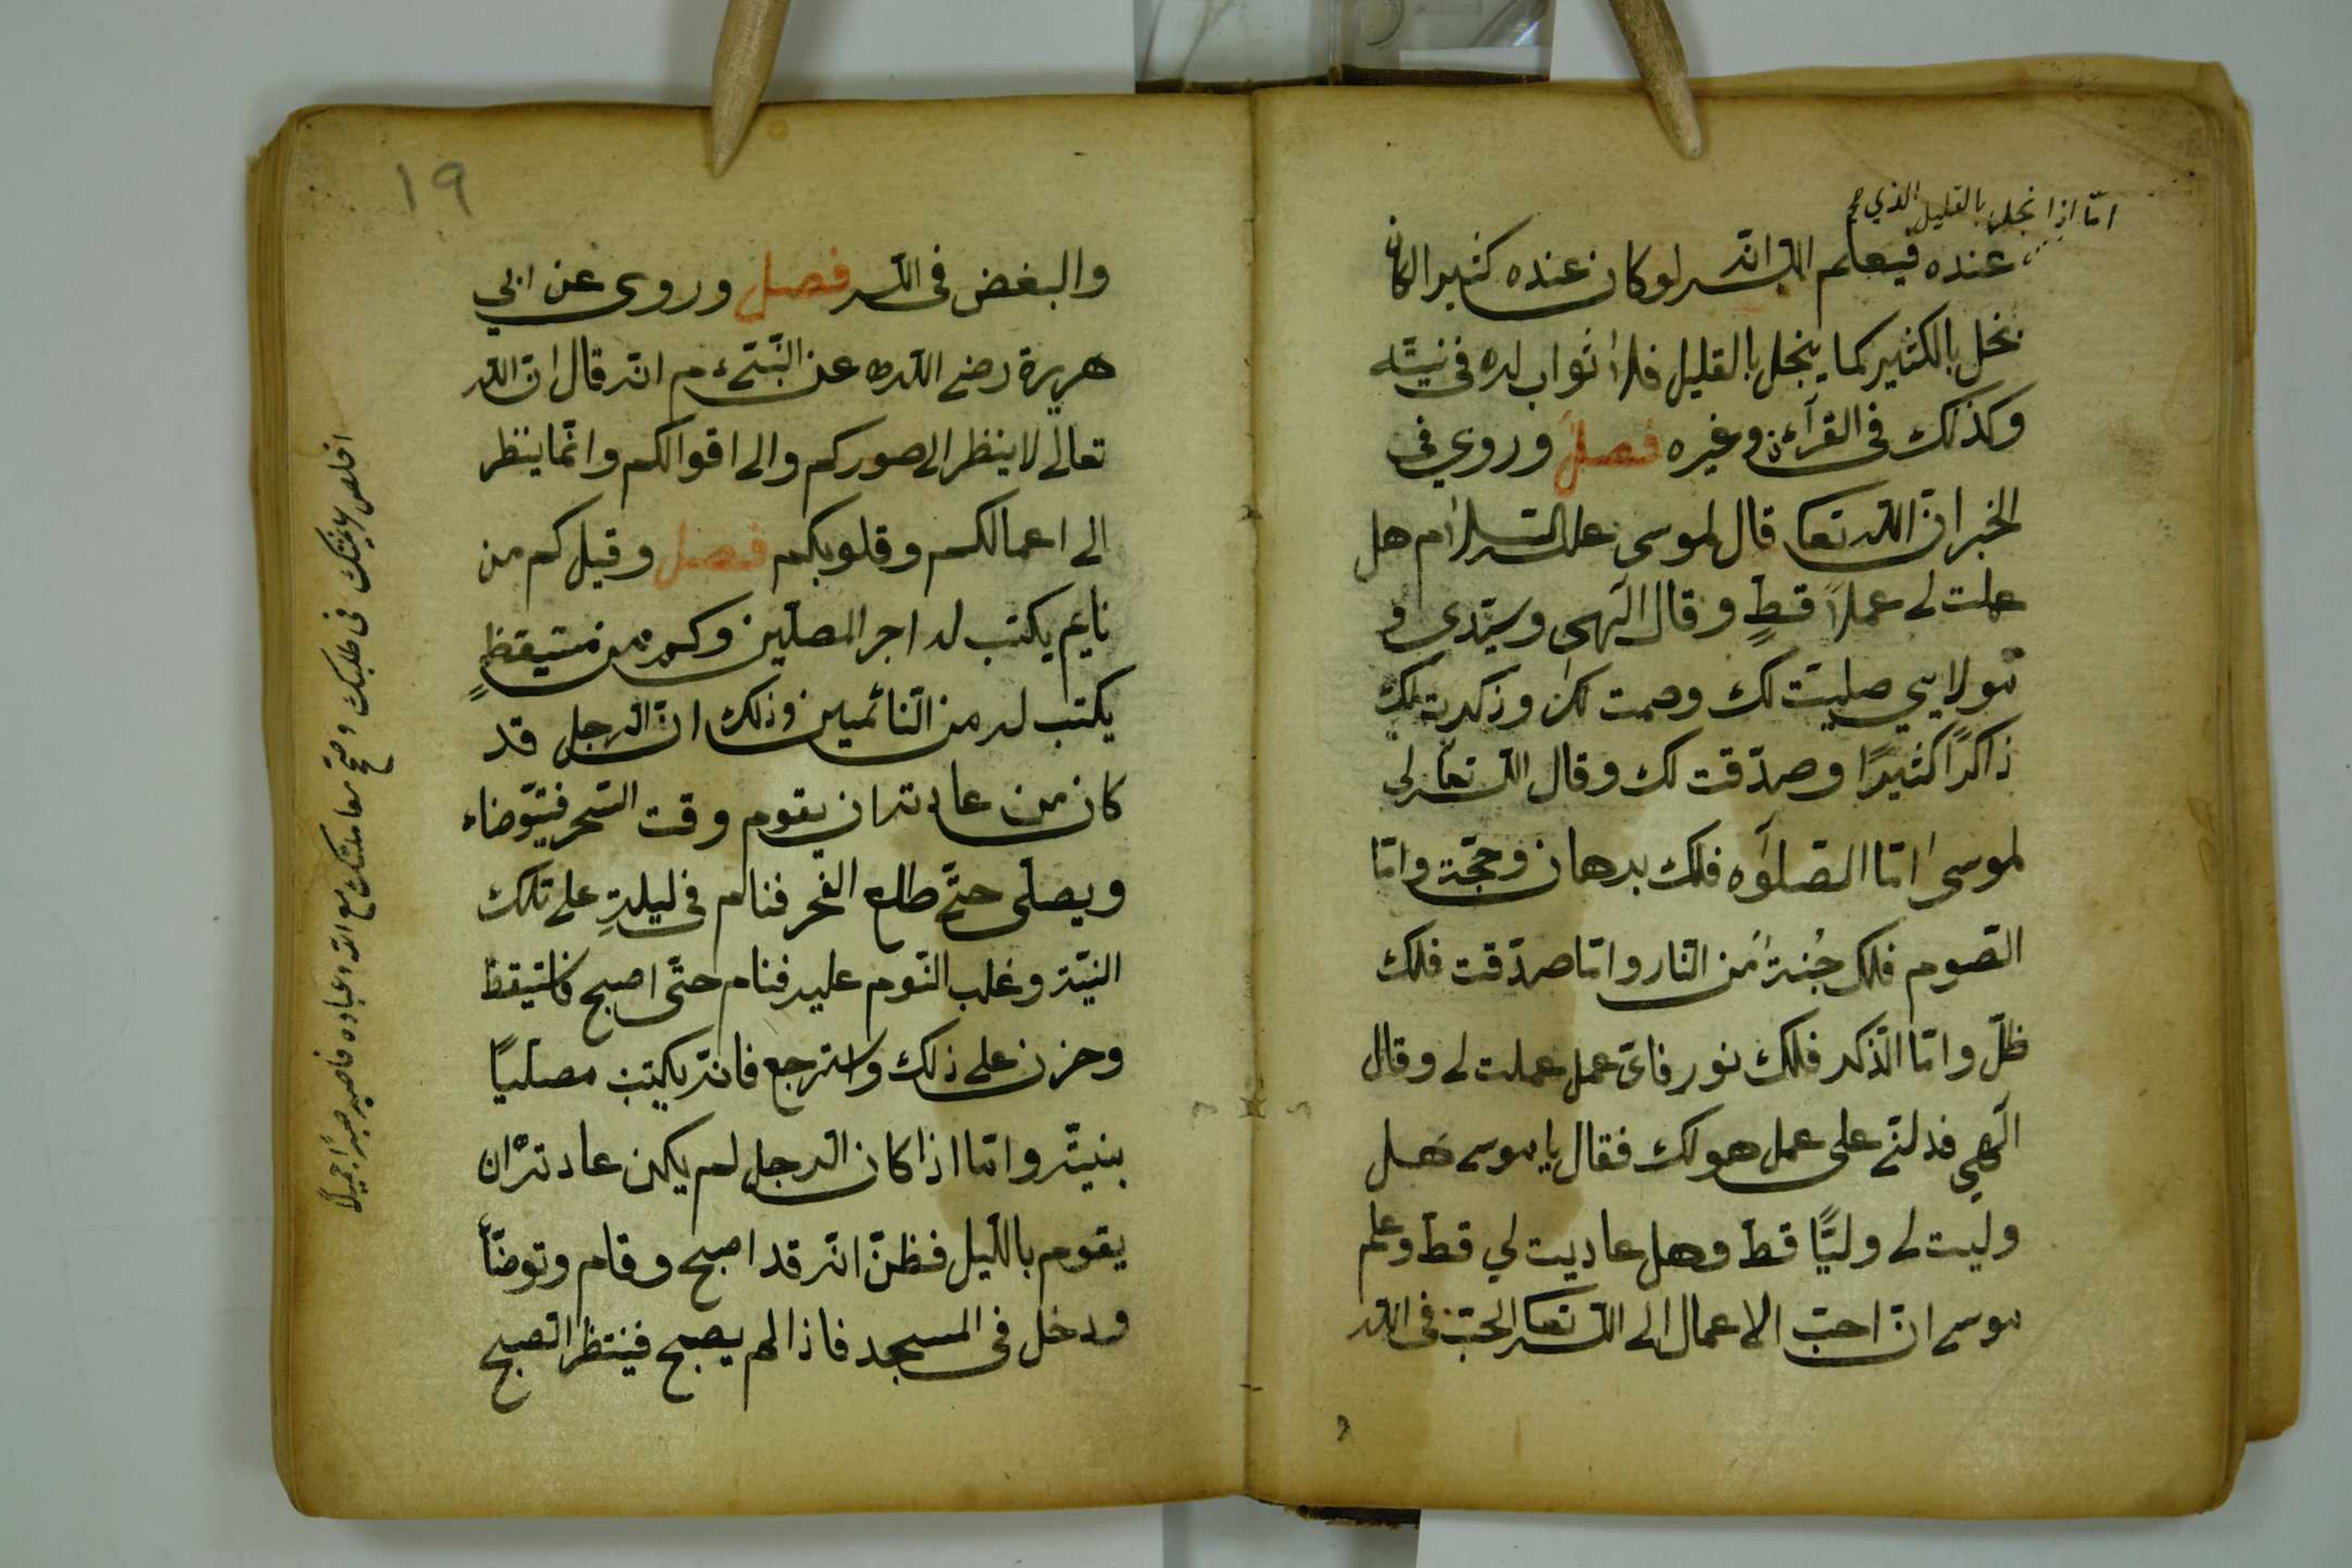 امّا اذا بخل بالقليل الذي
عنده فيعلم اللّه انّه لو كان عنده كثيرا لكان
بخل بالكثير كما يبخل بالقليل فلا ثواب له فى نيّته
وكذلك فى القرآءن وغيره فصل وروي فى
الخبر انّ اللّه تعا قال لموسى عليه السّلام هل
عملت لى عملاً قطٍ وقال الٓهى وسيّدى و
مولايي صليّت لك وصمت لك وذكرت لك
ذاكرًا كثيرًا وصدّقت لك وقال اللّه تعا لى
لموسى امّا الصّلوٰه فلك برهان وحجّة وامّا
الصّوم فلك جُنة من النّار وامّا صدّقت فلك
ظلّ وامّا الذّكر فلك نور فاىّ عمل عملت لى وقال
الٓهي فدلنّى على عمل هو لك فقال يا موسى هل
وليت لى وليًّا قطّ وهل عاديت لي قطّ وعلم
موسى انّ احبّ الاعمال الى اللّه تعا الحبّ فى اللّه
١٩
والبغض فى اللّه فصل وروى عن ابي
هريرة رضى اللّه عن النّبىّ ءم انّه قال انّ اللّه
تعالى لا ينظر الى صوركم والى اقوالكم وانّما ينظر
الى اعمالكم وقلوبكم فصل وقيل كم من
نايم يكتب له اجر المصلّين وكم من مستيقظٍ
يكتب له من النّائمين وذلك انّ الرّجل قد
كان من عادته ان يقوم وقت السّحر فيتوّضاء
ويصلّى حتّى طلع الفجر فنالم فى ليلةٍ على تلك
النيّة وغلب النّوم عليه فنام حتّى اصبح فاستيقظ
وحزن على ذلك واسترجع فانّه يكتب مصلّيًا
بنيّته وامّا اذا كان الرّجل لم يكن عادته ان
يقوم بالليل فظنّ انّه قد اصبح وقام وتوضّأ
ودخل فى المسجد فاذا لم يصبح فينتظر الصّبح
اخلص نيّتك فى طلبك وصحّح معاملتك مع اللّه وعباده فاصبر صبرًا جميلًا